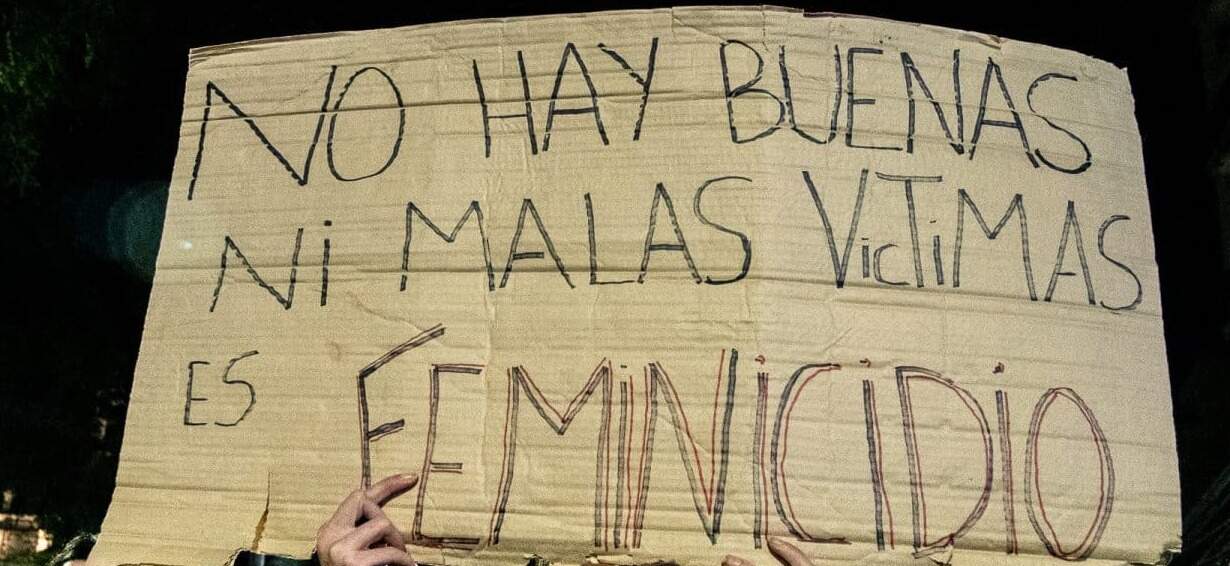 NO HAY BUENAS
NI MALAS VicTiMAS
ES FEMiNiCiDiO